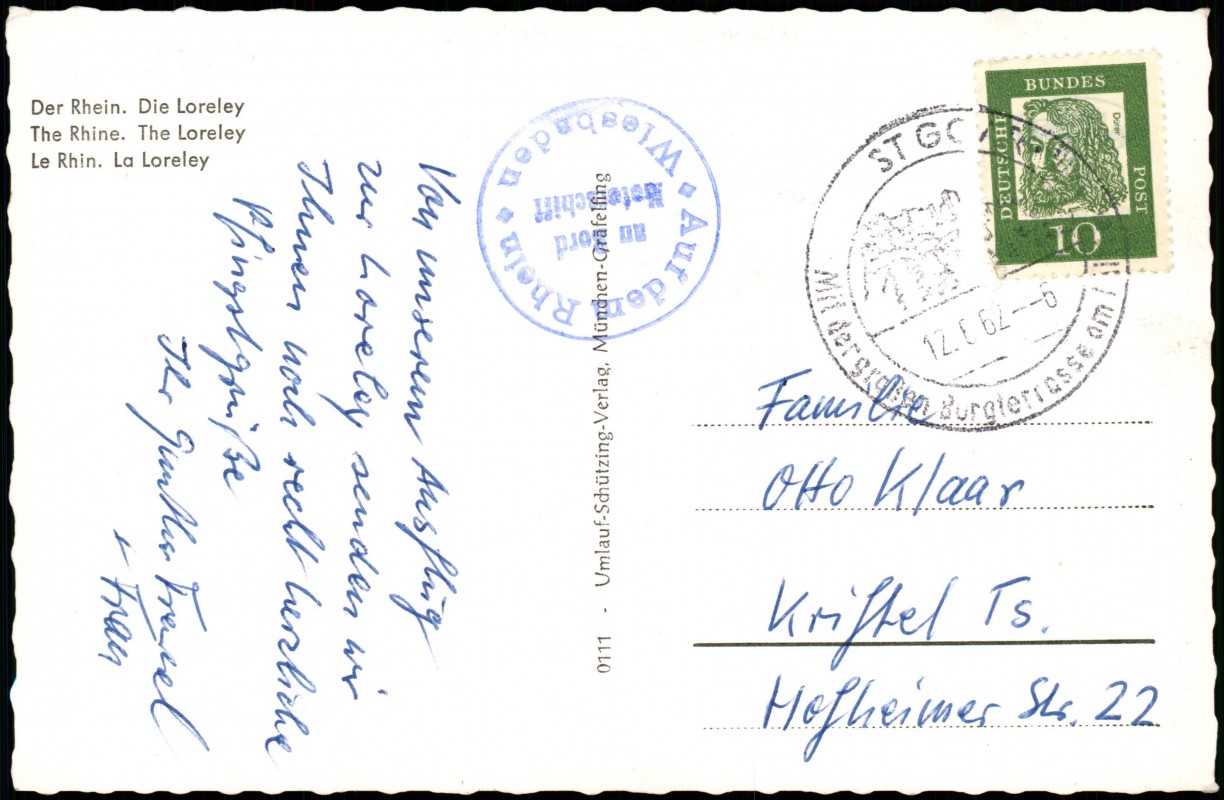 Der Rhein. Die Loreley
The Rhine. The Loreley
Le Rhin. La Loreley
Von unserem Ausflug
zur Loreley senden wir
Ihnen noch recht herzliche
Pfingstgrüße
Ihr Günther
+ Frau
Auf dem Rhein
an Bord
Motorschiff
Wiesbaden
0111 - Umlauf-Schützing-Verlag, München-Gräfelfing
DEUTSCHE
BUNDES
POST
Dürer
10
ST GOAR
12.6.62--6
Mit der großen Burgterrasse am
Familie
Otto Klaar
Kriftel Ts.
Hofheimer Str. 22